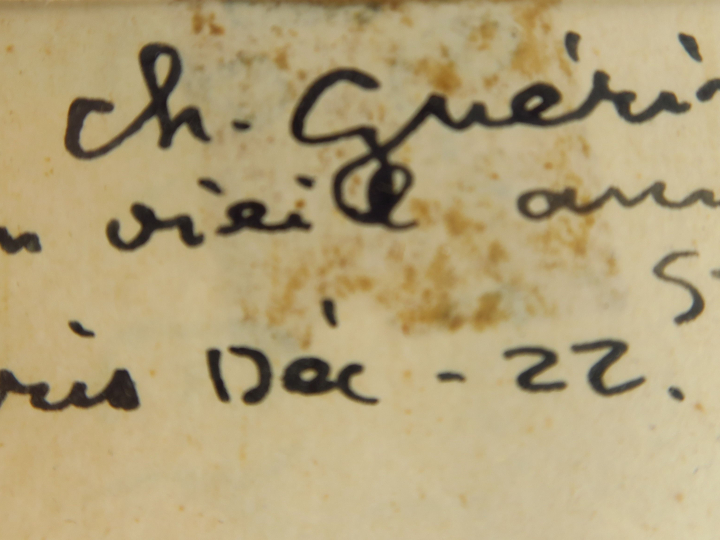 ch. Guéri
n vieil am
S
ris Déc - 22.